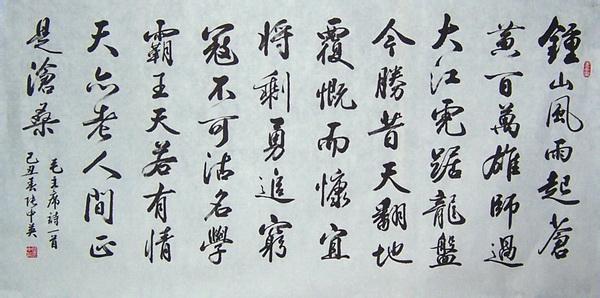 鍾山風雨起蒼
黄百萬雄師過
大江虎踞龍盤
今勝昔天翻地
覆慨而慷宜
将剩勇追窮
寇不可沽名學
霸王天若有情
天亦老人間正
是滄桑
毛主席詩一首
己丑春张中英